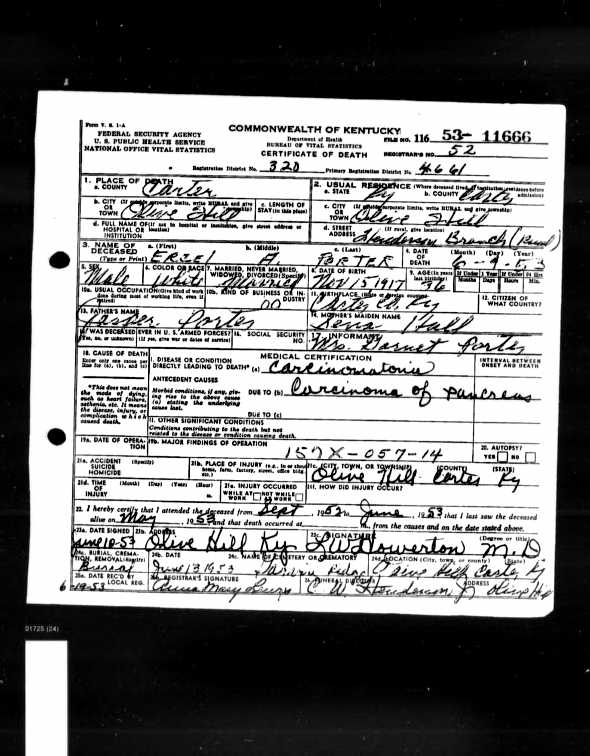 Form V. S. 1-A
FEDERAL SECURITY AGENCY
U. S. PUBLIC HEALTH SERVICE
NATIONAL OFFICE VITAL STATISTICS
COMMONWEALTH OF KENTUCKY
Department of Health
BUREAU OF VITAL STATISTICS
CERTIFICATE OF DEATH
FILE NO. 116 53- 11666
REGISTRAR'S NO. 52
Registration District No. 320 Primary Registration District No. 4661
1. PLACE OF DEATH
a. COUNTY Carter
2. USUAL RESIDENCE (Where deceased lived, if institution: residence before admission)
a. STATE Ky b. COUNTY Carter
b. CITY (If outside corporate limits, write RURAL and give township)
OR TOWN Olive Hill
c. LENGTH OF STAY (in this place)
c. CITY (If outside corporate limits, write RURAL and give township)
OR TOWN Olive Hill
d. FULL NAME OF (If not in hospital or institution, give street address or location)
HOSPITAL OR INSTITUTION
d. STREET ADDRESS (If rural, give location)
Henderson Branch (Rural)
3. NAME OF DECEASED
(Type or Print)
a. (First) b. (Middle) c. (Last)
ERZEL A. PORTER
4. DATE OF DEATH (Month) (Day) (Year)
6-9-53
5. SEX
Male
6. COLOR OR RACE
White
7. MARRIED, NEVER MARRIED, WIDOWED, DIVORCED (Specify)
Married
8. DATE OF BIRTH
Nov 15 1917
9. AGE (In years last birthday)
36
If Under 1 Year If Under 24 Hrs
Months Days Hours Min.
10a. USUAL OCCUPATION (Give kind of work done during most of working life, even if retired)
10b. KIND OF BUSINESS OR INDUSTRY
00
11. BIRTHPLACE (State or foreign country)
Carter Co. Ky
12. CITIZEN OF WHAT COUNTRY?
13. FATHER'S NAME
Jasper Porter
14. MOTHER'S MAIDEN NAME
Lena Hall
15. WAS DECEASED EVER IN U. S. ARMED FORCES?
(Yes, no, or unknown) (If yes, give war or dates of service)
16. SOCIAL SECURITY NO.
17. INFORMANT
Mrs. Garnet Porter
18. CAUSE OF DEATH
Enter only one cause per line for (a), (b), and (c)
MEDICAL CERTIFICATION
INTERVAL BETWEEN ONSET AND DEATH
I. DISEASE OR CONDITION
DIRECTLY LEADING TO DEATH* (a) Carcinomatonia
*This does not mean the mode of dying, such as heart failure, asthenia, etc. It means the disease, injury, or complication which caused death.
ANTECEDENT CAUSES
Morbid conditions, if any, giving rise to the above cause (a) stating the underlying cause last.
DUE TO (b) Carcinoma of Pancreas
DUE TO (c)
II. OTHER SIGNIFICANT CONDITIONS
Conditions contributing to the death but not related to the disease or condition causing death.
19a. DATE OF OPERATION
19b. MAJOR FINDINGS OF OPERATION
157X-057-14
20. AUTOPSY?
YES NO
21a. ACCIDENT (Specify)
SUICIDE
HOMICIDE
21b. PLACE OF INJURY (e.g., in or about home, farm, factory, street, office bldg., etc.)
21c. (CITY, TOWN, OR TOWNSHIP) (COUNTY) (STATE)
Olive Hill Carter Ky
21d. TIME OF INJURY (Month) (Day) (Year) (Hour) m.
21e. INJURY OCCURRED
WHILE AT WORK NOT WHILE AT WORK
21f. HOW DID INJURY OCCUR?
22. I hereby certify that I attended the deceased from Sept, 1952, to June, 1953 that I last saw the deceased
alive on May, 1953 and that death occurred at m., from the causes and on the date stated above.
23a. DATE SIGNED
June 10-53
23b. ADDRESS
Olive Hill Ky
23c. SIGNATURE (Degree or title)
Howerton M.D
24a. BURIAL, CREMATION, REMOVAL (Specify)
Burial
24b. DATE
June 13 1953
24c. NAME OF CEMETERY OR CREMATORY
24d. LOCATION (City, town, or county) (State)
Olive Hill, Carter Ky
25a. DATE REC'D BY LOCAL REG.
6-19-53
25b. REGISTRAR'S SIGNATURE
Anna Mary
26. FUNERAL DIRECTOR
Henderson Olive Hill
01725 (24)